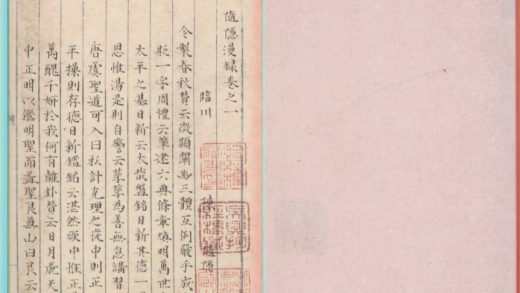 隨隱漫錄卷之一
臨川 陳
令製春秋贊云微顯闡幽三體互例嚴乎
貶一字周禮云筆建六典條章煥明萬世
太平之基日新云大哉盤銘日新其德一
思惟湯是則自警云孳孳為善無怠講習
唐虞聖道可入曰私計克理之從中則正
平操則存德日新鑑銘云湛然厥中惟正
萬醜千妍於我何有離卦贊云日月麗天
中正明以繼明聖而益聖艮兼山曰艮云